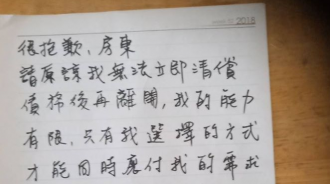 2018
很抱歉、房東
請原諒我無法立即清償
債務後再離開,我的能力
有限,只有我選擇的方式
才能同時應付我的需求